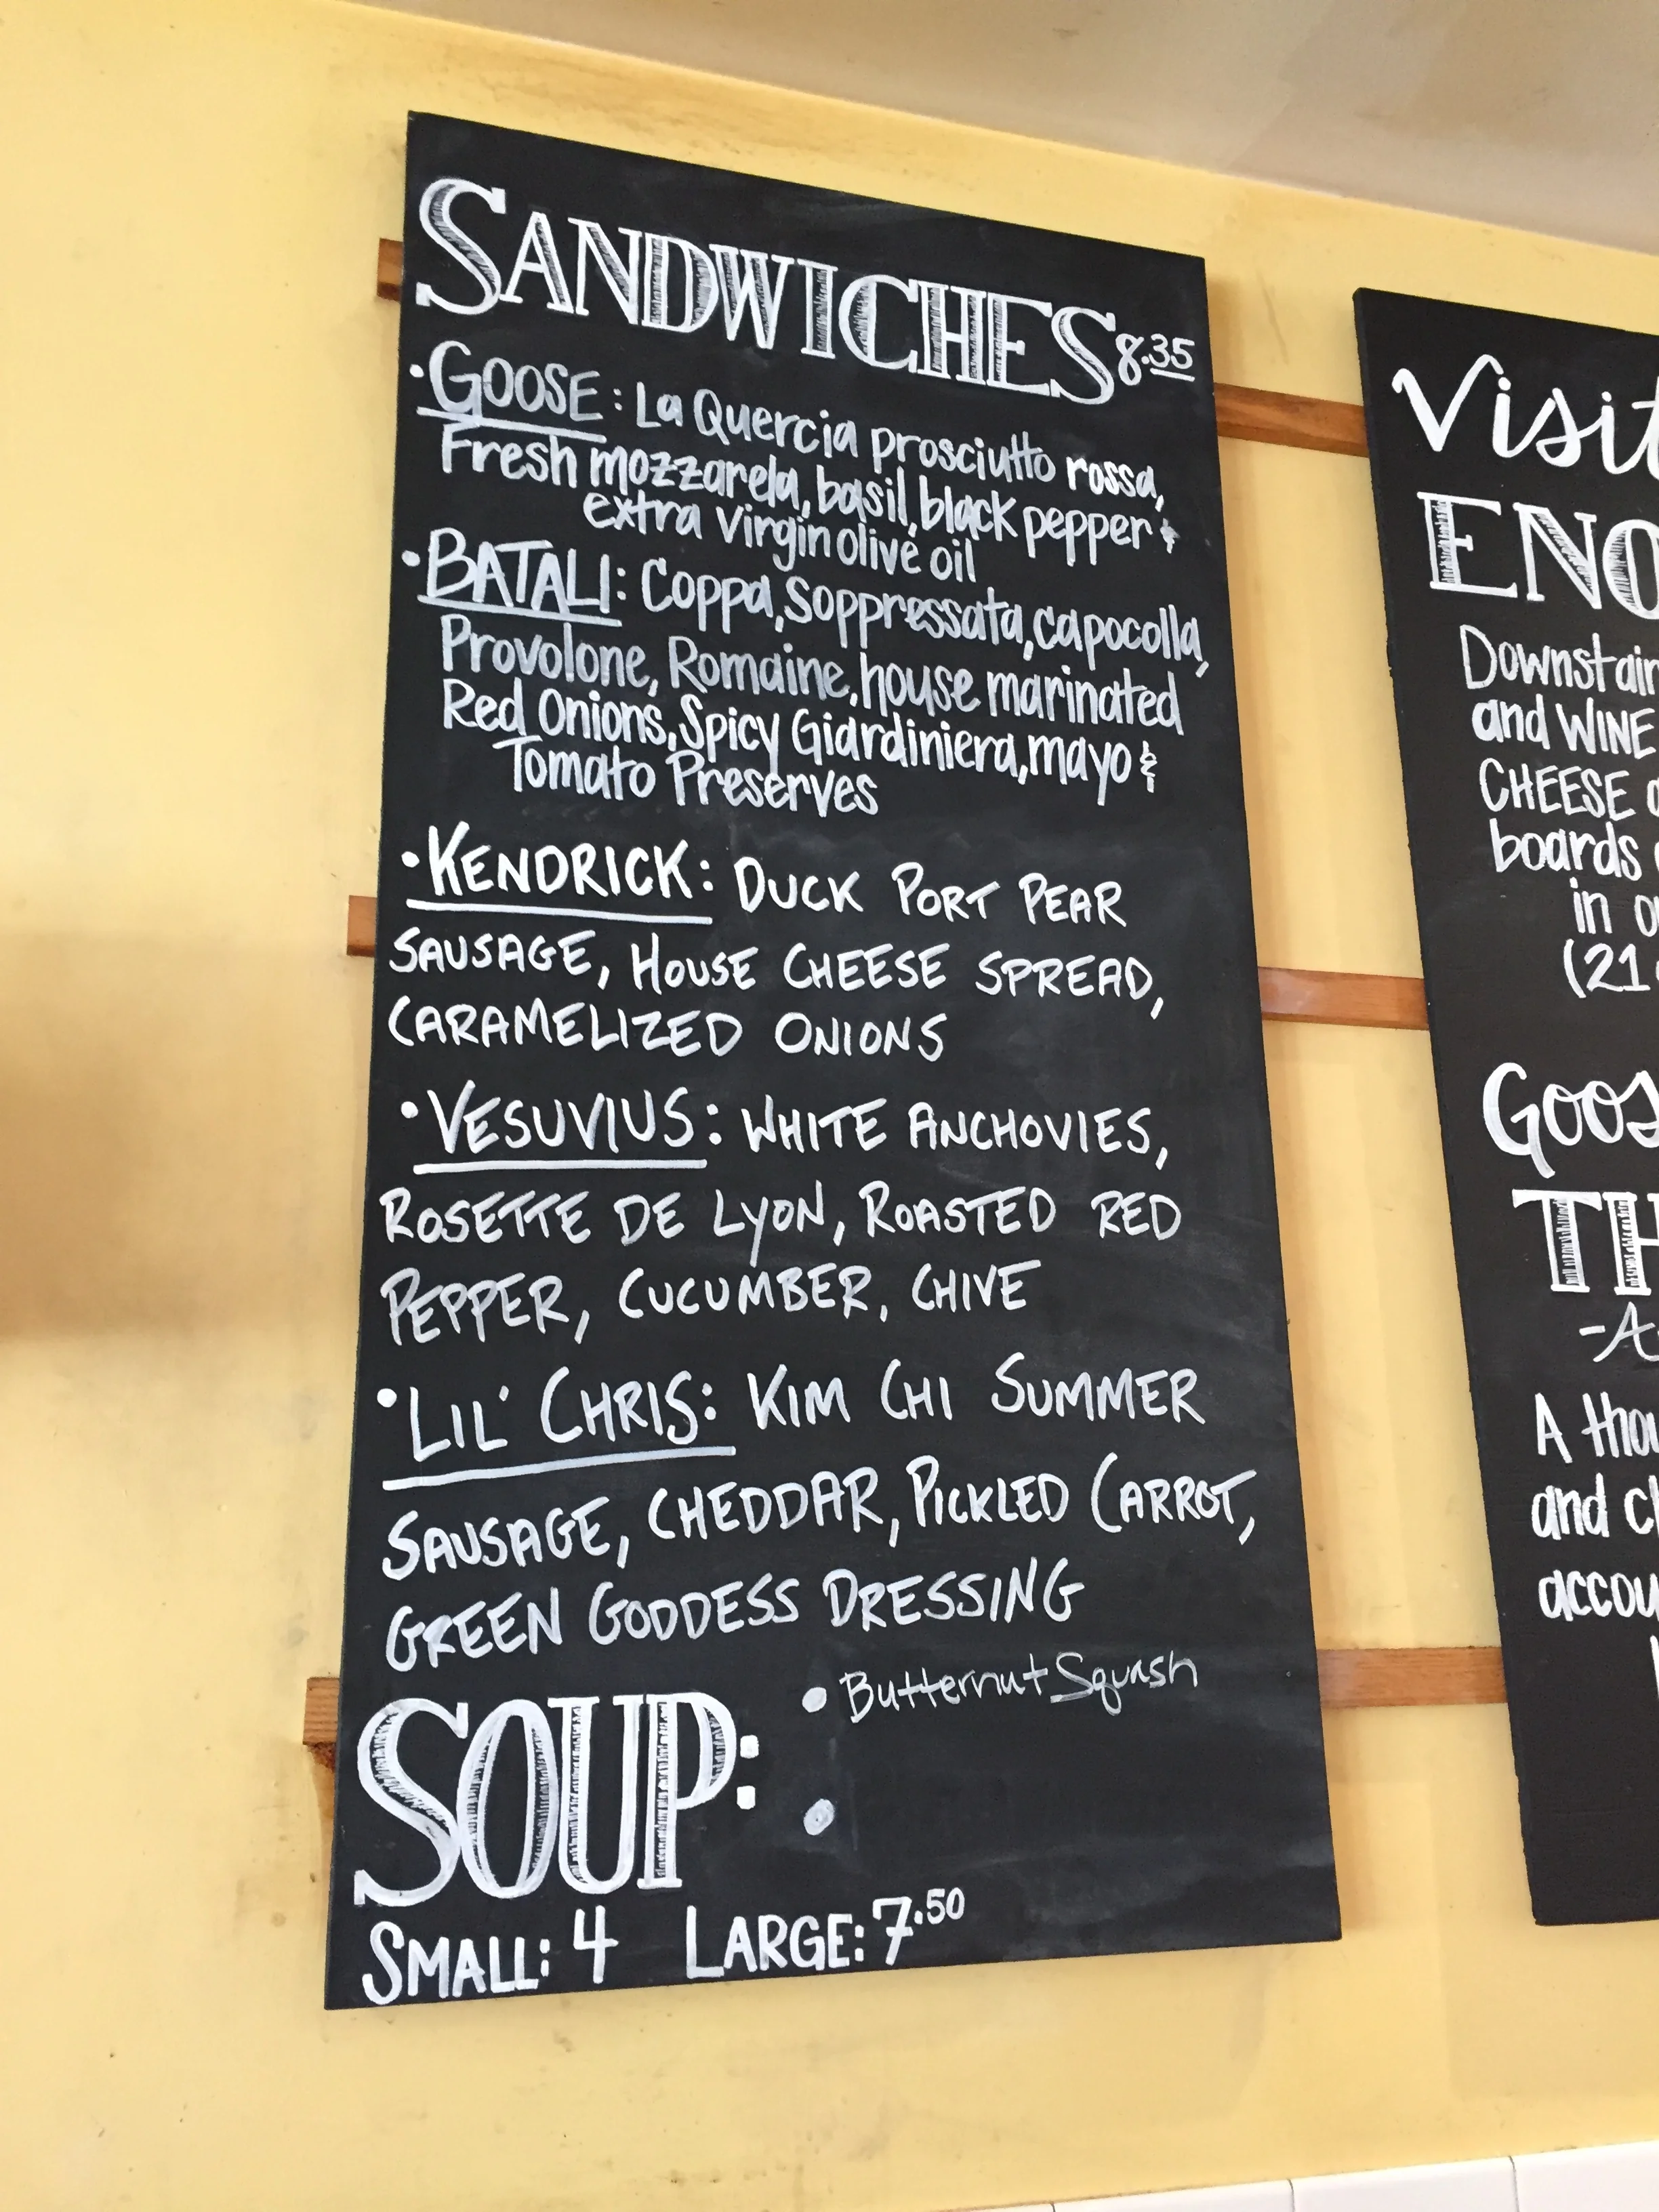 SANDWICHES 8.35
• GOOSE: La Quercia prosciutto rossa,
Fresh mozzarela, basil, black pepper &
extra virgin olive oil
• BATALI: Coppa, Soppressata, capocolla,
Provolone, Romaine, house marinated
Red Onions, Spicy Giardiniera, mayo &
Tomato Preserves
• KENDRICK: DUCK PORT PEAR
SAUSAGE, HOUSE CHEESE SPREAD,
CARAMELIZED ONIONS
• VESUVIUS: WHITE ANCHOVIES,
ROSETTE DE LYON, ROASTED RED
PEPPER, CUCUMBER, CHIVE
• LIL' CHRIS: KIM CHI SUMMER
SAUSAGE, CHEDDAR, PICKLED CARROT,
GREEN GODDESS DRESSING
SOUP: • Butternut Squash
•
SMALL: 4 LARGE: 7.50
Visit
ENO
Downstair
and WINE
CHEESE
boards
in
(21
Goos
TH
-A
A thou
and ch
accou